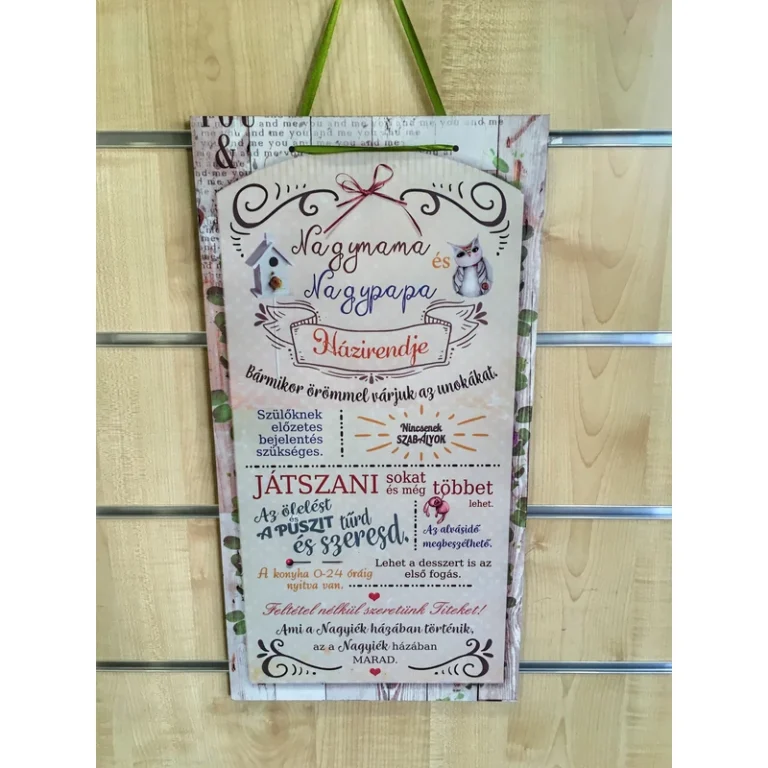 YOU and me you and me you and me you and me
&
Nagymama
és
Nagypapa
Házirendje
Bármikor örömmel várjuk az unokákat.
Szülőknek
előzetes
bejelentés
szükséges.
Nincsenek
SZABÁLYOK
JÁTSZANI sokat
és még többet
lehet.
Az ölelést
és
A PUSZIT tűrd
és szeresd.
Az alvásidő
megbeszélhető.
A konyha 0-24 óráig
nyitva van.
Lehet a desszert is az
első fogás.
Feltétel nélkül szeretünk Titeket!
Ami a Nagyiék házában történik,
az a Nagyiék házában
MARAD.